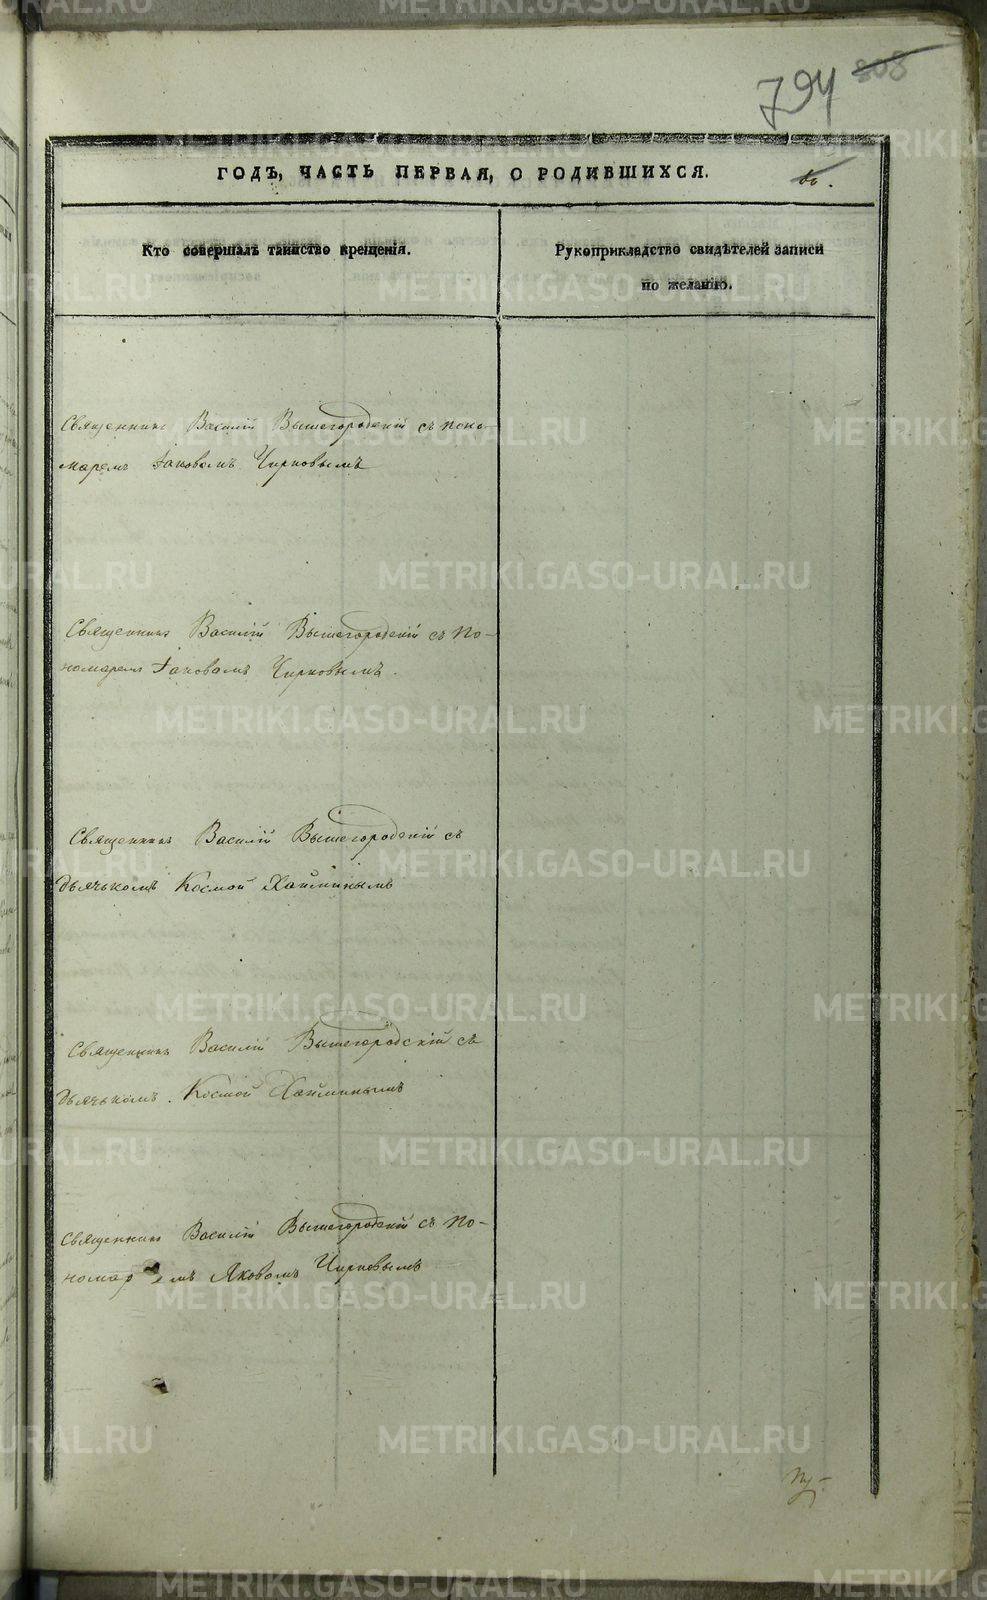 794 808
ГОДЪ, ЧАСТЬ ПЕРВАЯ, О РОДИВШИХСЯ.
Кто совершалъ таинство крещенія.
Рукоприкладство свидѣтелей записи
по желанію.
Священникъ Василій Вышегородскій съ поно-
маремъ Іаковомъ Чирковымъ
Священникъ Василій Вышегородскій съ по-
номаремъ Іаковомъ Чирковымъ.
Священникъ Василій Вышегородскій съ
дьячькомъ Космой Хаминымъ
Священникъ Василій Вышегородскій съ
дьячькомъ Космой Хаминымъ
Священникъ Василій Вышегородскій съ по-
номаремъ Яковомъ Чирковымъ
METRIKI.GASO-URAL.RU